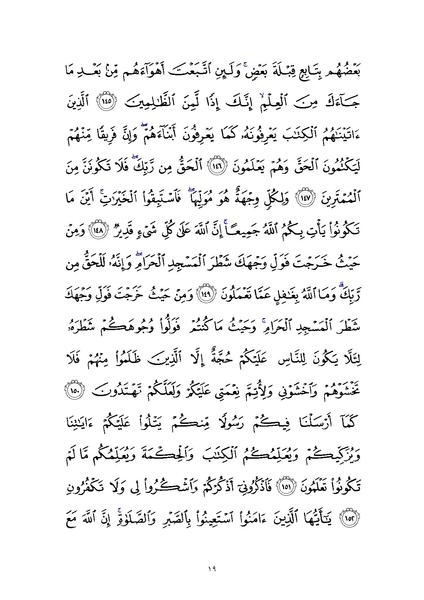 بَعْضُهُم بِتَابِعٍ قِبْلَةَ بَعْضٍ ۚ وَلَئِنِ ٱتَّبَعْتَ أَهْوَآءَهُم مِّنۢ بَعْدِ مَا
جَآءَكَ مِنَ ٱلْعِلْمِ ۙ إِنَّكَ إِذًا لَّمِنَ ٱلظَّٰلِمِينَ ١٤٥ ٱلَّذِينَ
ءَاتَيْنَٰهُمُ ٱلْكِتَٰبَ يَعْرِفُونَهُۥ كَمَا يَعْرِفُونَ أَبْنَآءَهُمْ ۖ وَإِنَّ فَرِيقًا مِّنْهُمْ
لَيَكْتُمُونَ ٱلْحَقَّ وَهُمْ يَعْلَمُونَ ١٤٦ ٱلْحَقُّ مِن رَّبِّكَ ۖ فَلَا تَكُونَنَّ مِنَ
ٱلْمُمْتَرِينَ ١٤٧ وَلِكُلٍّ وِجْهَةٌ هُوَ مُوَلِّيهَا ۖ فَٱسْتَبِقُوا۟ ٱلْخَيْرَٰتِ ۚ أَيْنَ مَا
تَكُونُوا۟ يَأْتِ بِكُمُ ٱللَّهُ جَمِيعًا ۚ إِنَّ ٱللَّهَ عَلَىٰ كُلِّ شَىْءٍ قَدِيرٌ ١٤٨ وَمِنْ
حَيْثُ خَرَجْتَ فَوَلِّ وَجْهَكَ شَطْرَ ٱلْمَسْجِدِ ٱلْحَرَامِ ۖ وَإِنَّهُۥ لَلْحَقُّ مِن
رَّبِّكَ ۗ وَمَا ٱللَّهُ بِغَٰفِلٍ عَمَّا تَعْمَلُونَ ١٤٩ وَمِنْ حَيْثُ خَرَجْتَ فَوَلِّ وَجْهَكَ
شَطْرَ ٱلْمَسْجِدِ ٱلْحَرَامِ ۚ وَحَيْثُ مَا كُنتُمْ فَوَلُّوا۟ وُجُوهَكُمْ شَطْرَهُۥ
لِئَلَّا يَكُونَ لِلنَّاسِ عَلَيْكُمْ حُجَّةٌ إِلَّا ٱلَّذِينَ ظَلَمُوا۟ مِنْهُمْ فَلَا
تَخْشَوْهُمْ وَٱخْشَوْنِى وَلِأُتِمَّ نِعْمَتِى عَلَيْكُمْ وَلَعَلَّكُمْ تَهْتَدُونَ ١٥٠
كَمَآ أَرْسَلْنَا فِيكُمْ رَسُولًا مِّنكُمْ يَتْلُوا۟ عَلَيْكُمْ ءَايَٰتِنَا
وَيُزَكِّيكُمْ وَيُعَلِّمُكُمُ ٱلْكِتَٰبَ وَٱلْحِكْمَةَ وَيُعَلِّمُكُم مَّا لَمْ
تَكُونُوا۟ تَعْلَمُونَ ١٥١ فَٱذْكُرُونِىٓ أَذْكُرْكُمْ وَٱشْكُرُوا۟ لِى وَلَا تَكْفُرُونِ
١٥٢ يَٰٓأَيُّهَا ٱلَّذِينَ ءَامَنُوا۟ ٱسْتَعِينُوا۟ بِٱلصَّبْرِ وَٱلصَّلَوٰةِ ۚ إِنَّ ٱللَّهَ مَعَ
١٩